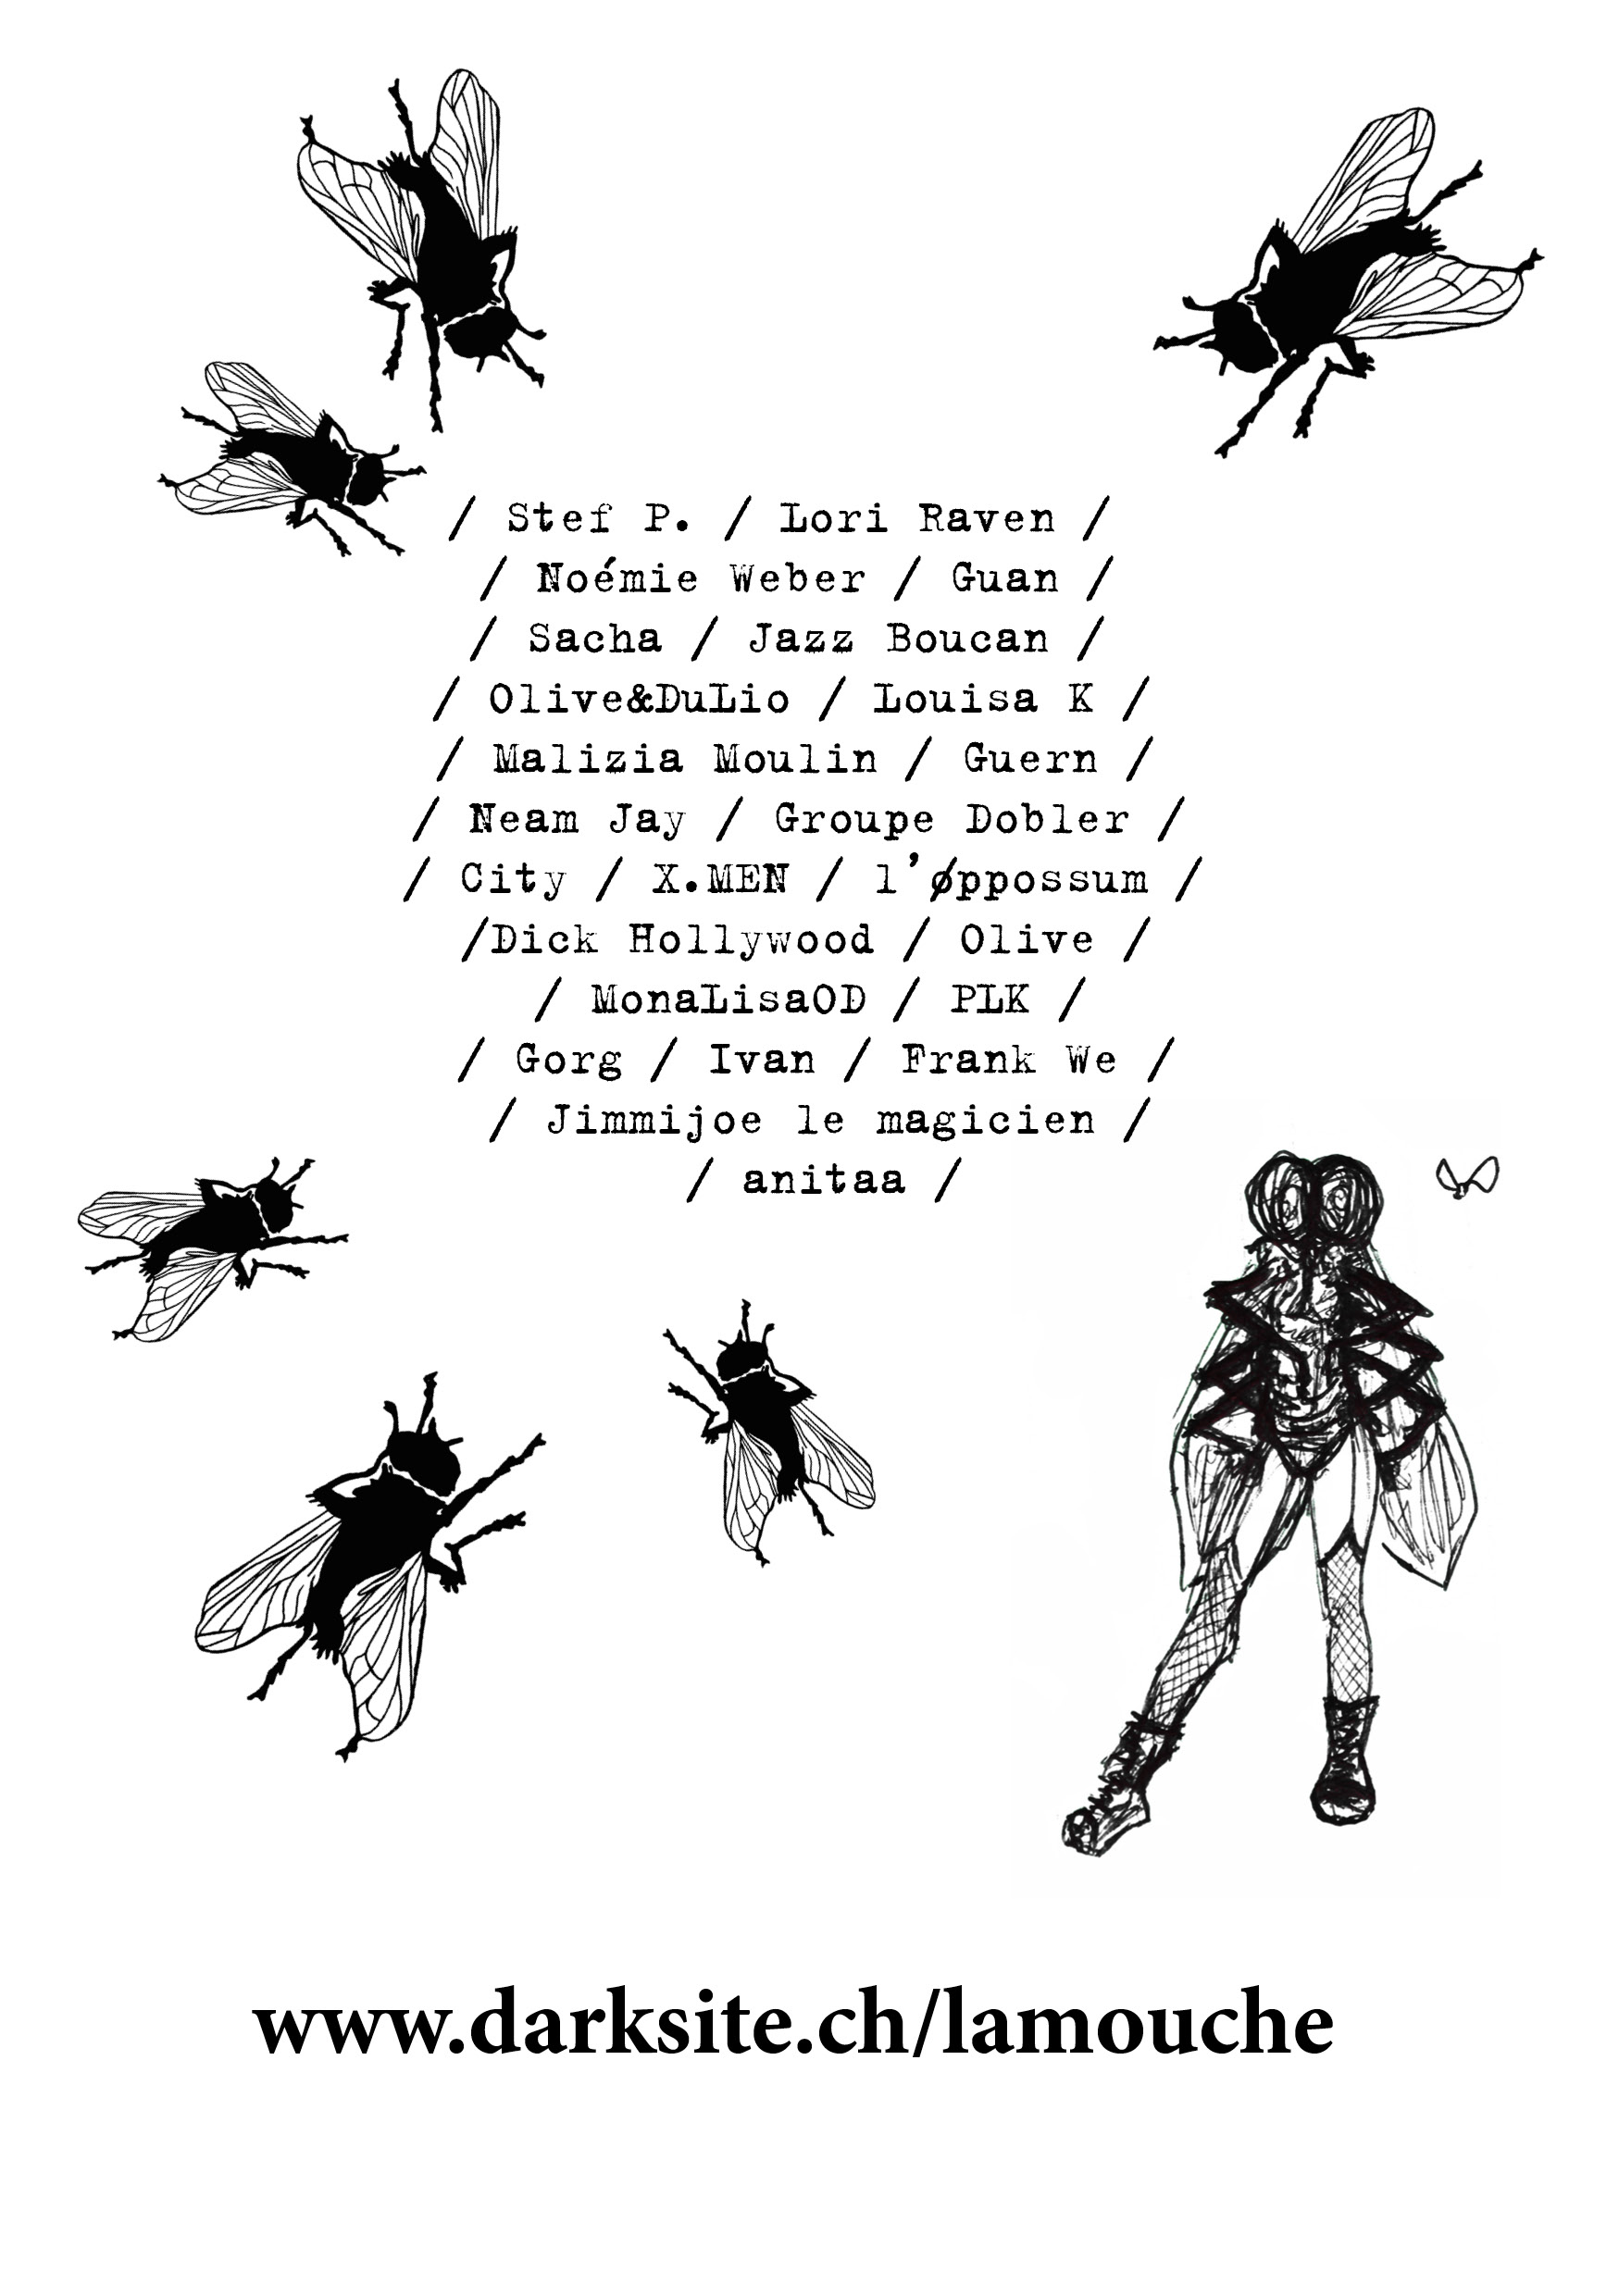 / Stef P. / Lori Raven /
/ Noémie Weber / Guan /
/ Sacha / Jazz Boucan /
/ Olive&DuLio / Louisa K /
/ Malizia Moulin / Guern /
/ Neam Jay / Groupe Dobler /
/ City / X.MEN / l'øppossum /
/Dick Hollywood / Olive /
/ MonaLisaOD / PLK /
/ Gorg / Ivan / Frank We /
/ Jimmijoe le magicien /
/ anitaa /
www.darksite.ch/lamouche